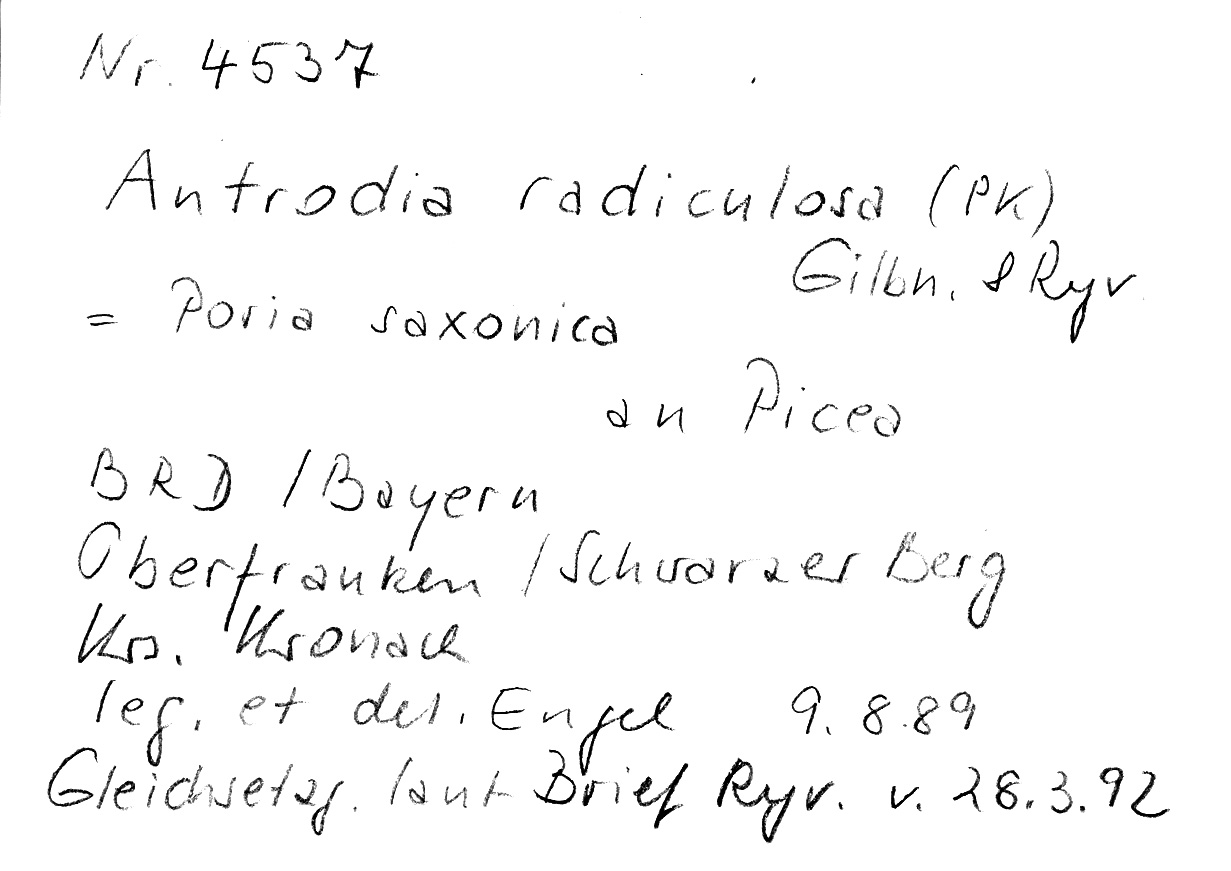 Nr. 4537
Antrodia radiculosa (PK)
Gilbn. & Ryv.
= Poria saxonica
an Picea
BRD / Bayern
Oberfranken / Schwarzer Berg
Krs. Kronach
leg. et det. Engel 9.8.89
Gleichsetzg. laut Brief Ryv. v. 28.3.92